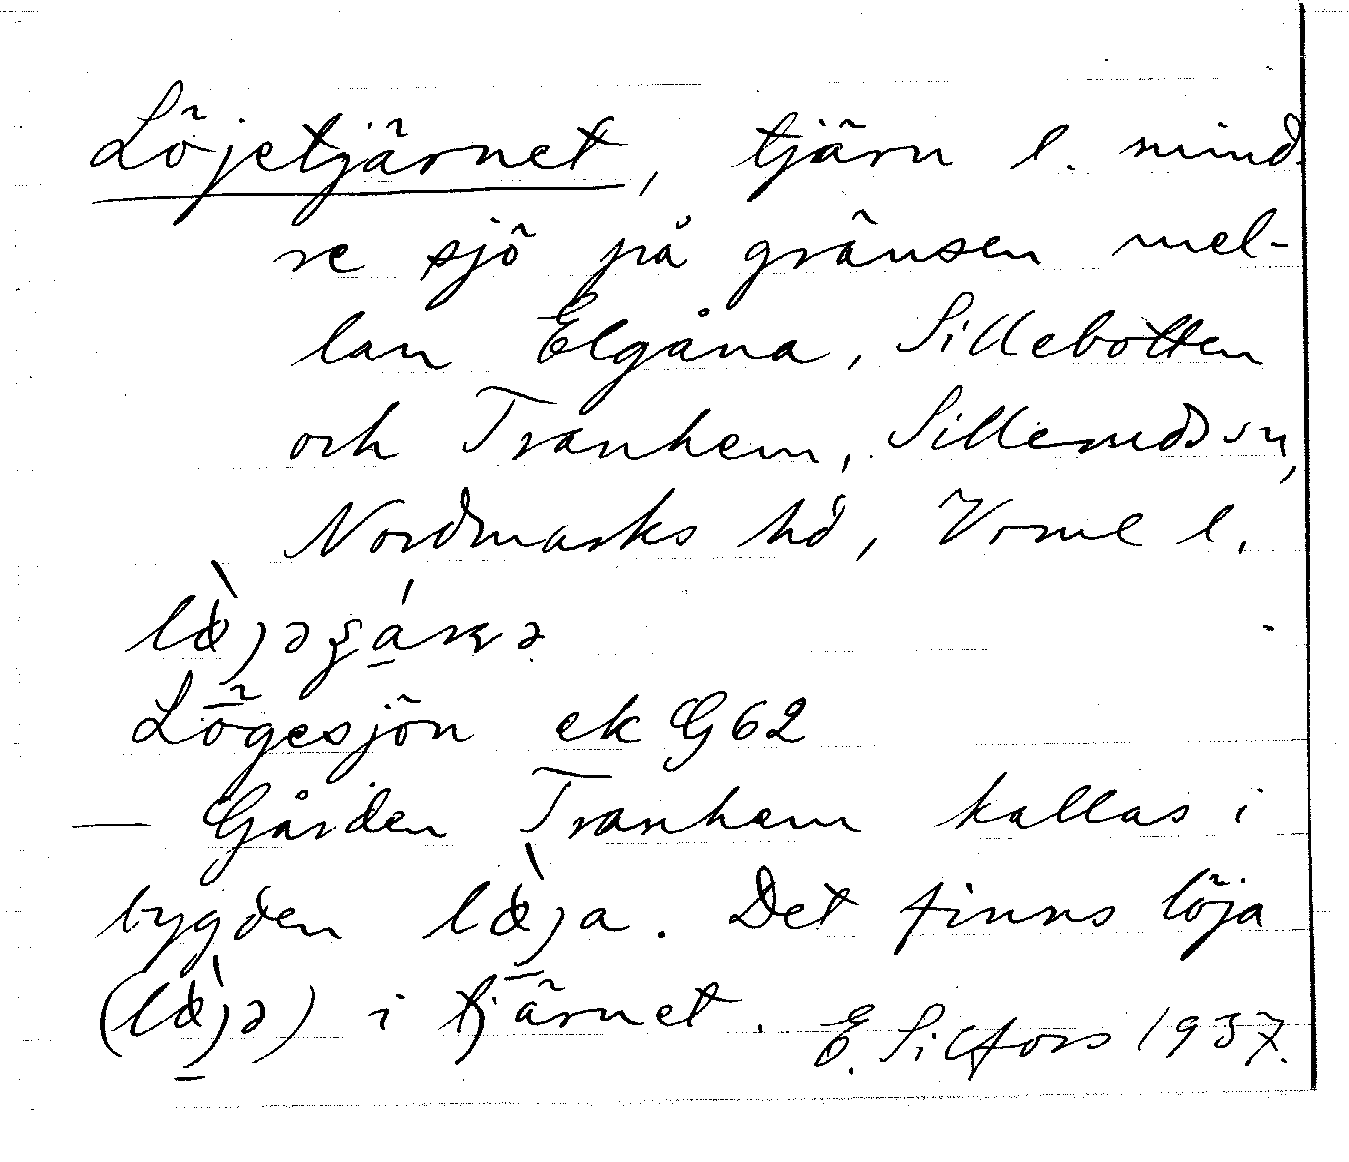 Löjetjärnet, tjärn l. mind-
re sjö på gränsen mel-
lan Elgåna, Sillebotten
och Tranhem, Sillerudssn,
Nordmarks hd, Vrml l.
Lögesjön ek G62
— Gården Tranhem kallas i
bygden . Det finns löja
( ) i tjärnet. E. Silfors 1937.